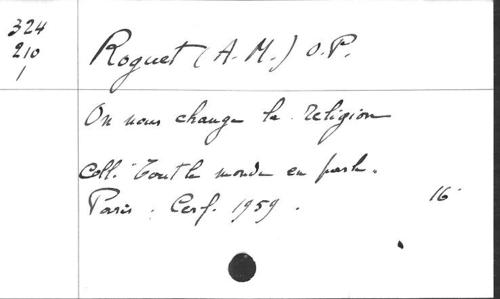 324
210
1
Roguet (A.-M.) O.P.
On nous change la religion
Coll. "Tout le monde en parle"
Paris. Cerf. 1959.
16